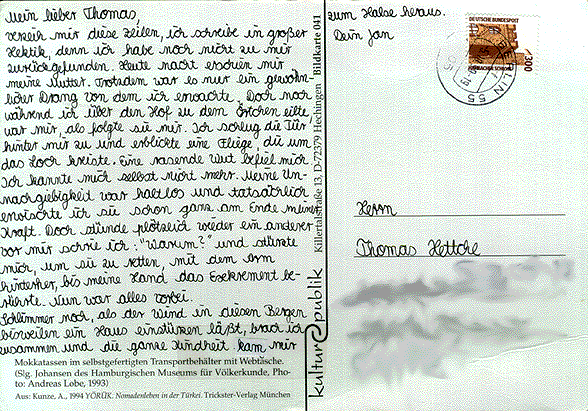 Mein lieber Thomas,
verzeih mir diese Zeilen, ich schreibe in großer
Hektik, denn ich habe noch nicht zu mir
zurückgefunden. Heute nacht erschien mir
meine Mutter. Trotzdem war es nur ein gewöhn-
licher Drang von dem ich erwachte. Doch noch
während ich über den Hof zu dem Örtchen eilte,
war mir, als folgte sie mir. Ich schlug die Tür
hinter mir zu und erblickte eine Fliege, die um
das Loch kreiste. Eine rasende Wut befiel mich.
Ich kannte mich selbst nicht mehr. Meine Un-
nachgiebigkeit war haltlos und tatsächlich
erwischte ich sie schon ganz am Ende meiner
Kraft. Doch stünde plötzlich wieder ein anderer
vor mir schrie ich: "Warum?" und stürzte
mich, um sie zu retten, mit dem Arm
hinterher, bis meine Hand das Exkrement be-
rührte. Nun war alles vorbei.
Schlimmer noch, als der Wind in diesen Bergen
bisweilen ein Haus einstürzen läßt, brach ich
zusammen und die ganze Kindheit kam mir
zum Halse heraus.
Dein Jan
Mokkatassen im selbstgefertigten Transportbehälter mit Webtasche.
(Slg. Johansen des Hamburgischen Museums für Völkerkunde, Pho-
to: Andreas Lobe, 1993)
Aus: Kunze, A., 1994 YÖRÜK. Nomadenleben in der Türkei. Trickster-Verlag München
kultur republik Killertalstraße 13, D-72379 Hechingen Bildkarte 041
DEUTSCHE BUNDESPOST
300
BERLIN 55
Herrn
Thomas Hettche